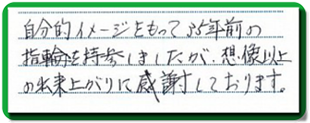 自分的イメージをもって35年前の
指輪を持参しましたが、想像以上
の出来上がりに感謝しております。